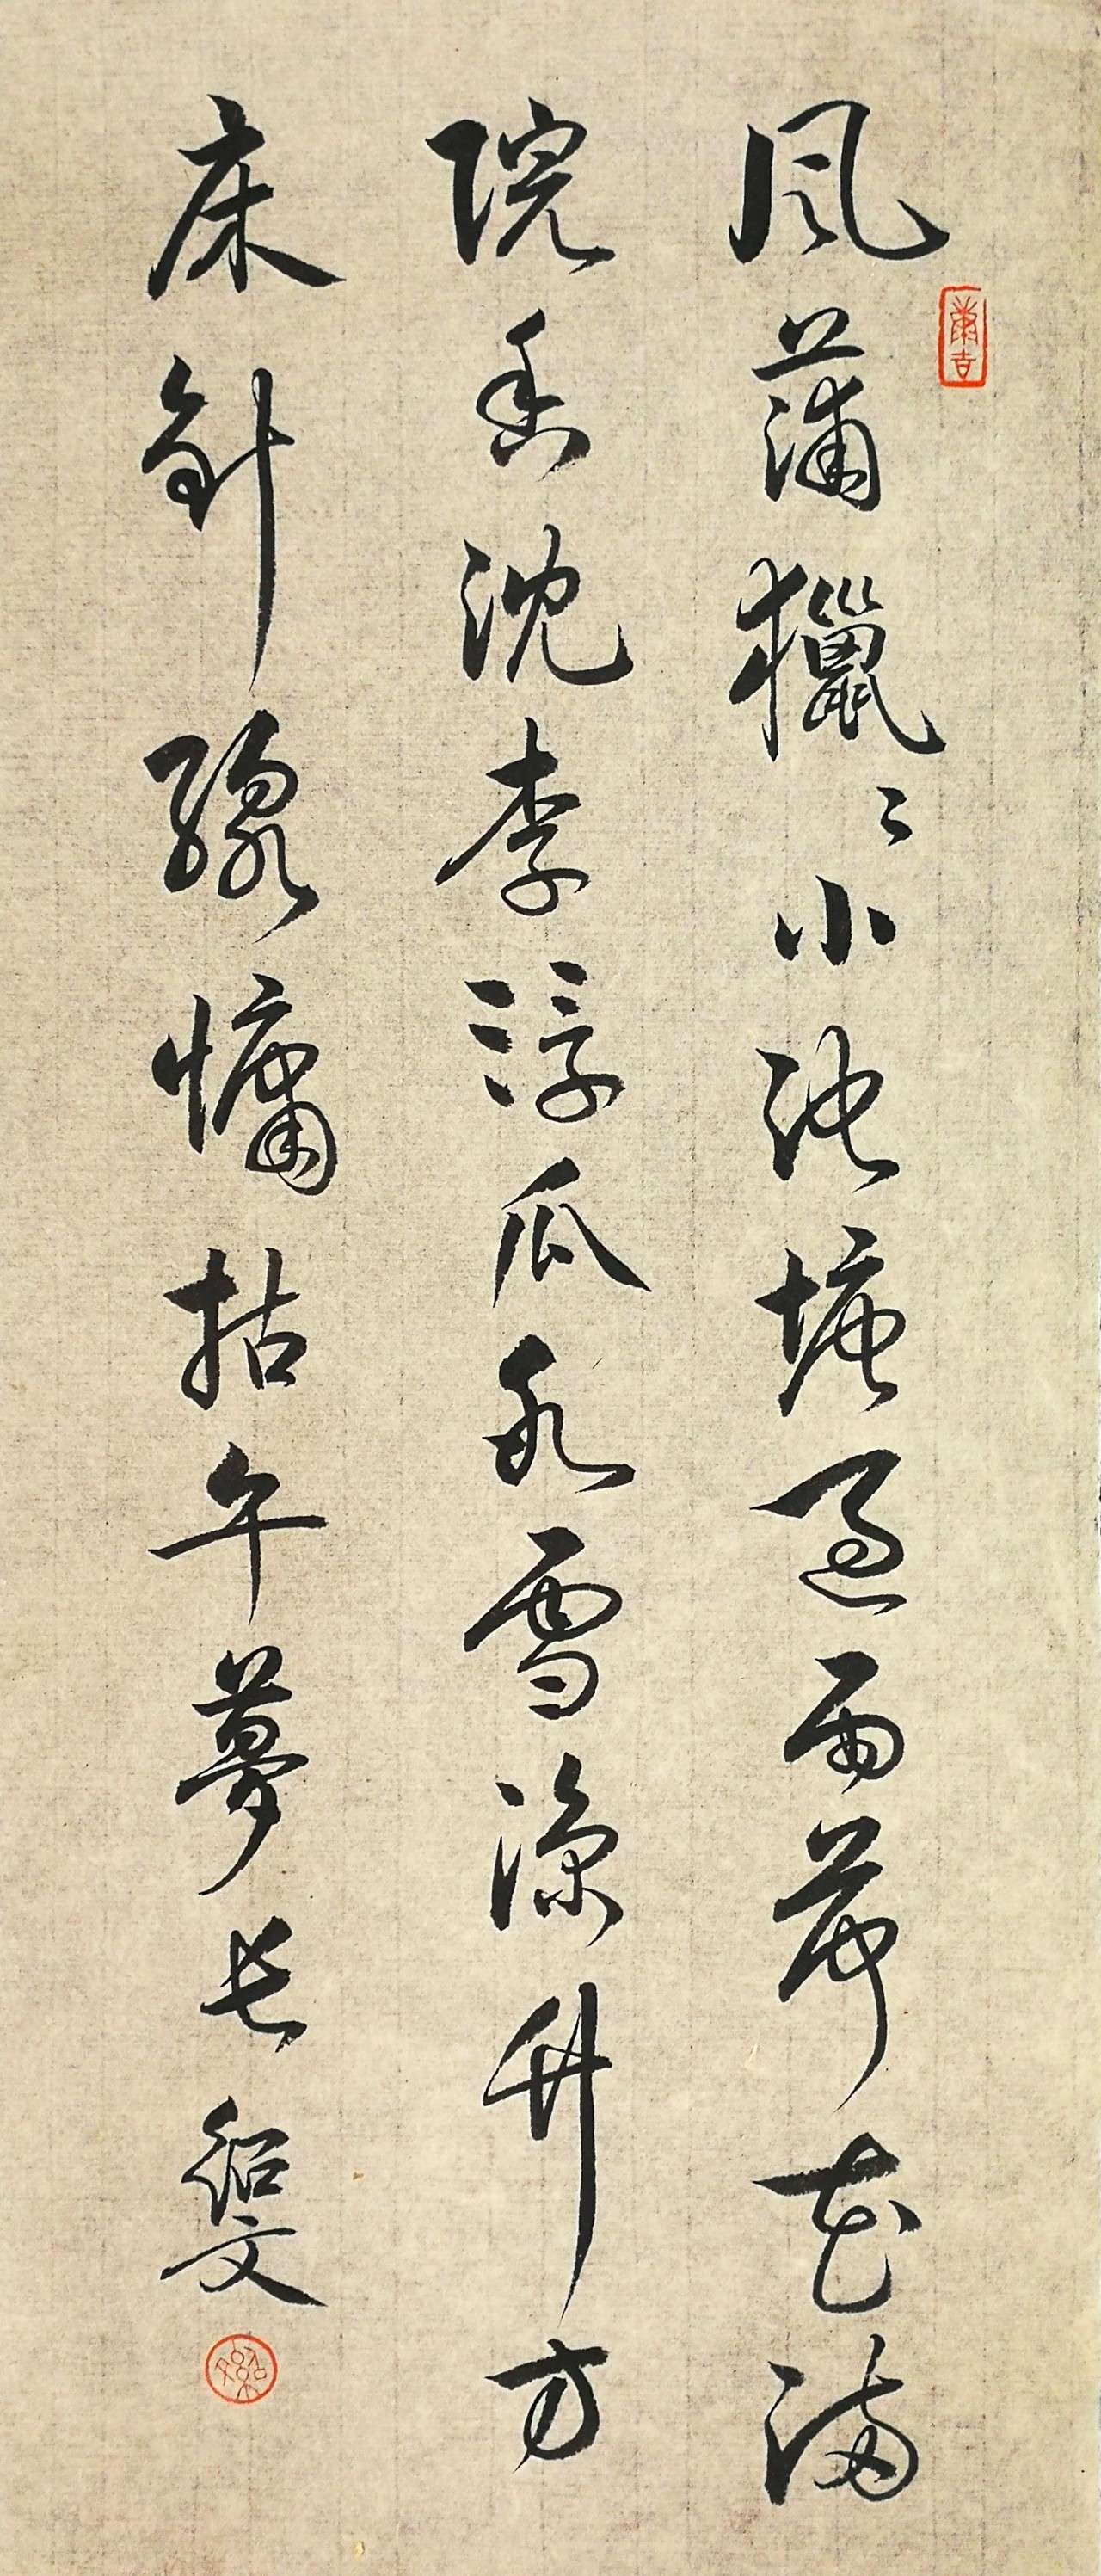 风蒲獵〻小池塘過雨荷花滿
院香沈李浮瓜冰雪涼竹方
床針線慵拈午夢長 紹文